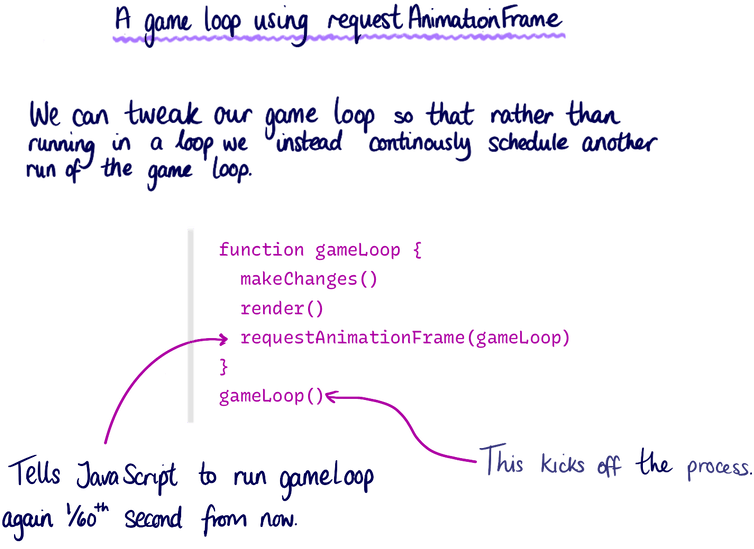 A game loop using requestAnimationFrame
We can tweak our game loop so that rather than
running in a loop we instead continously schedule another
run of the game loop.
function gameLoop {
  makeChanges()
  render()
  requestAnimationFrame(gameLoop)
}
gameLoop()
Tells JavaScript to run gameLoop
again 1/60th second from now.
This kicks off the process.